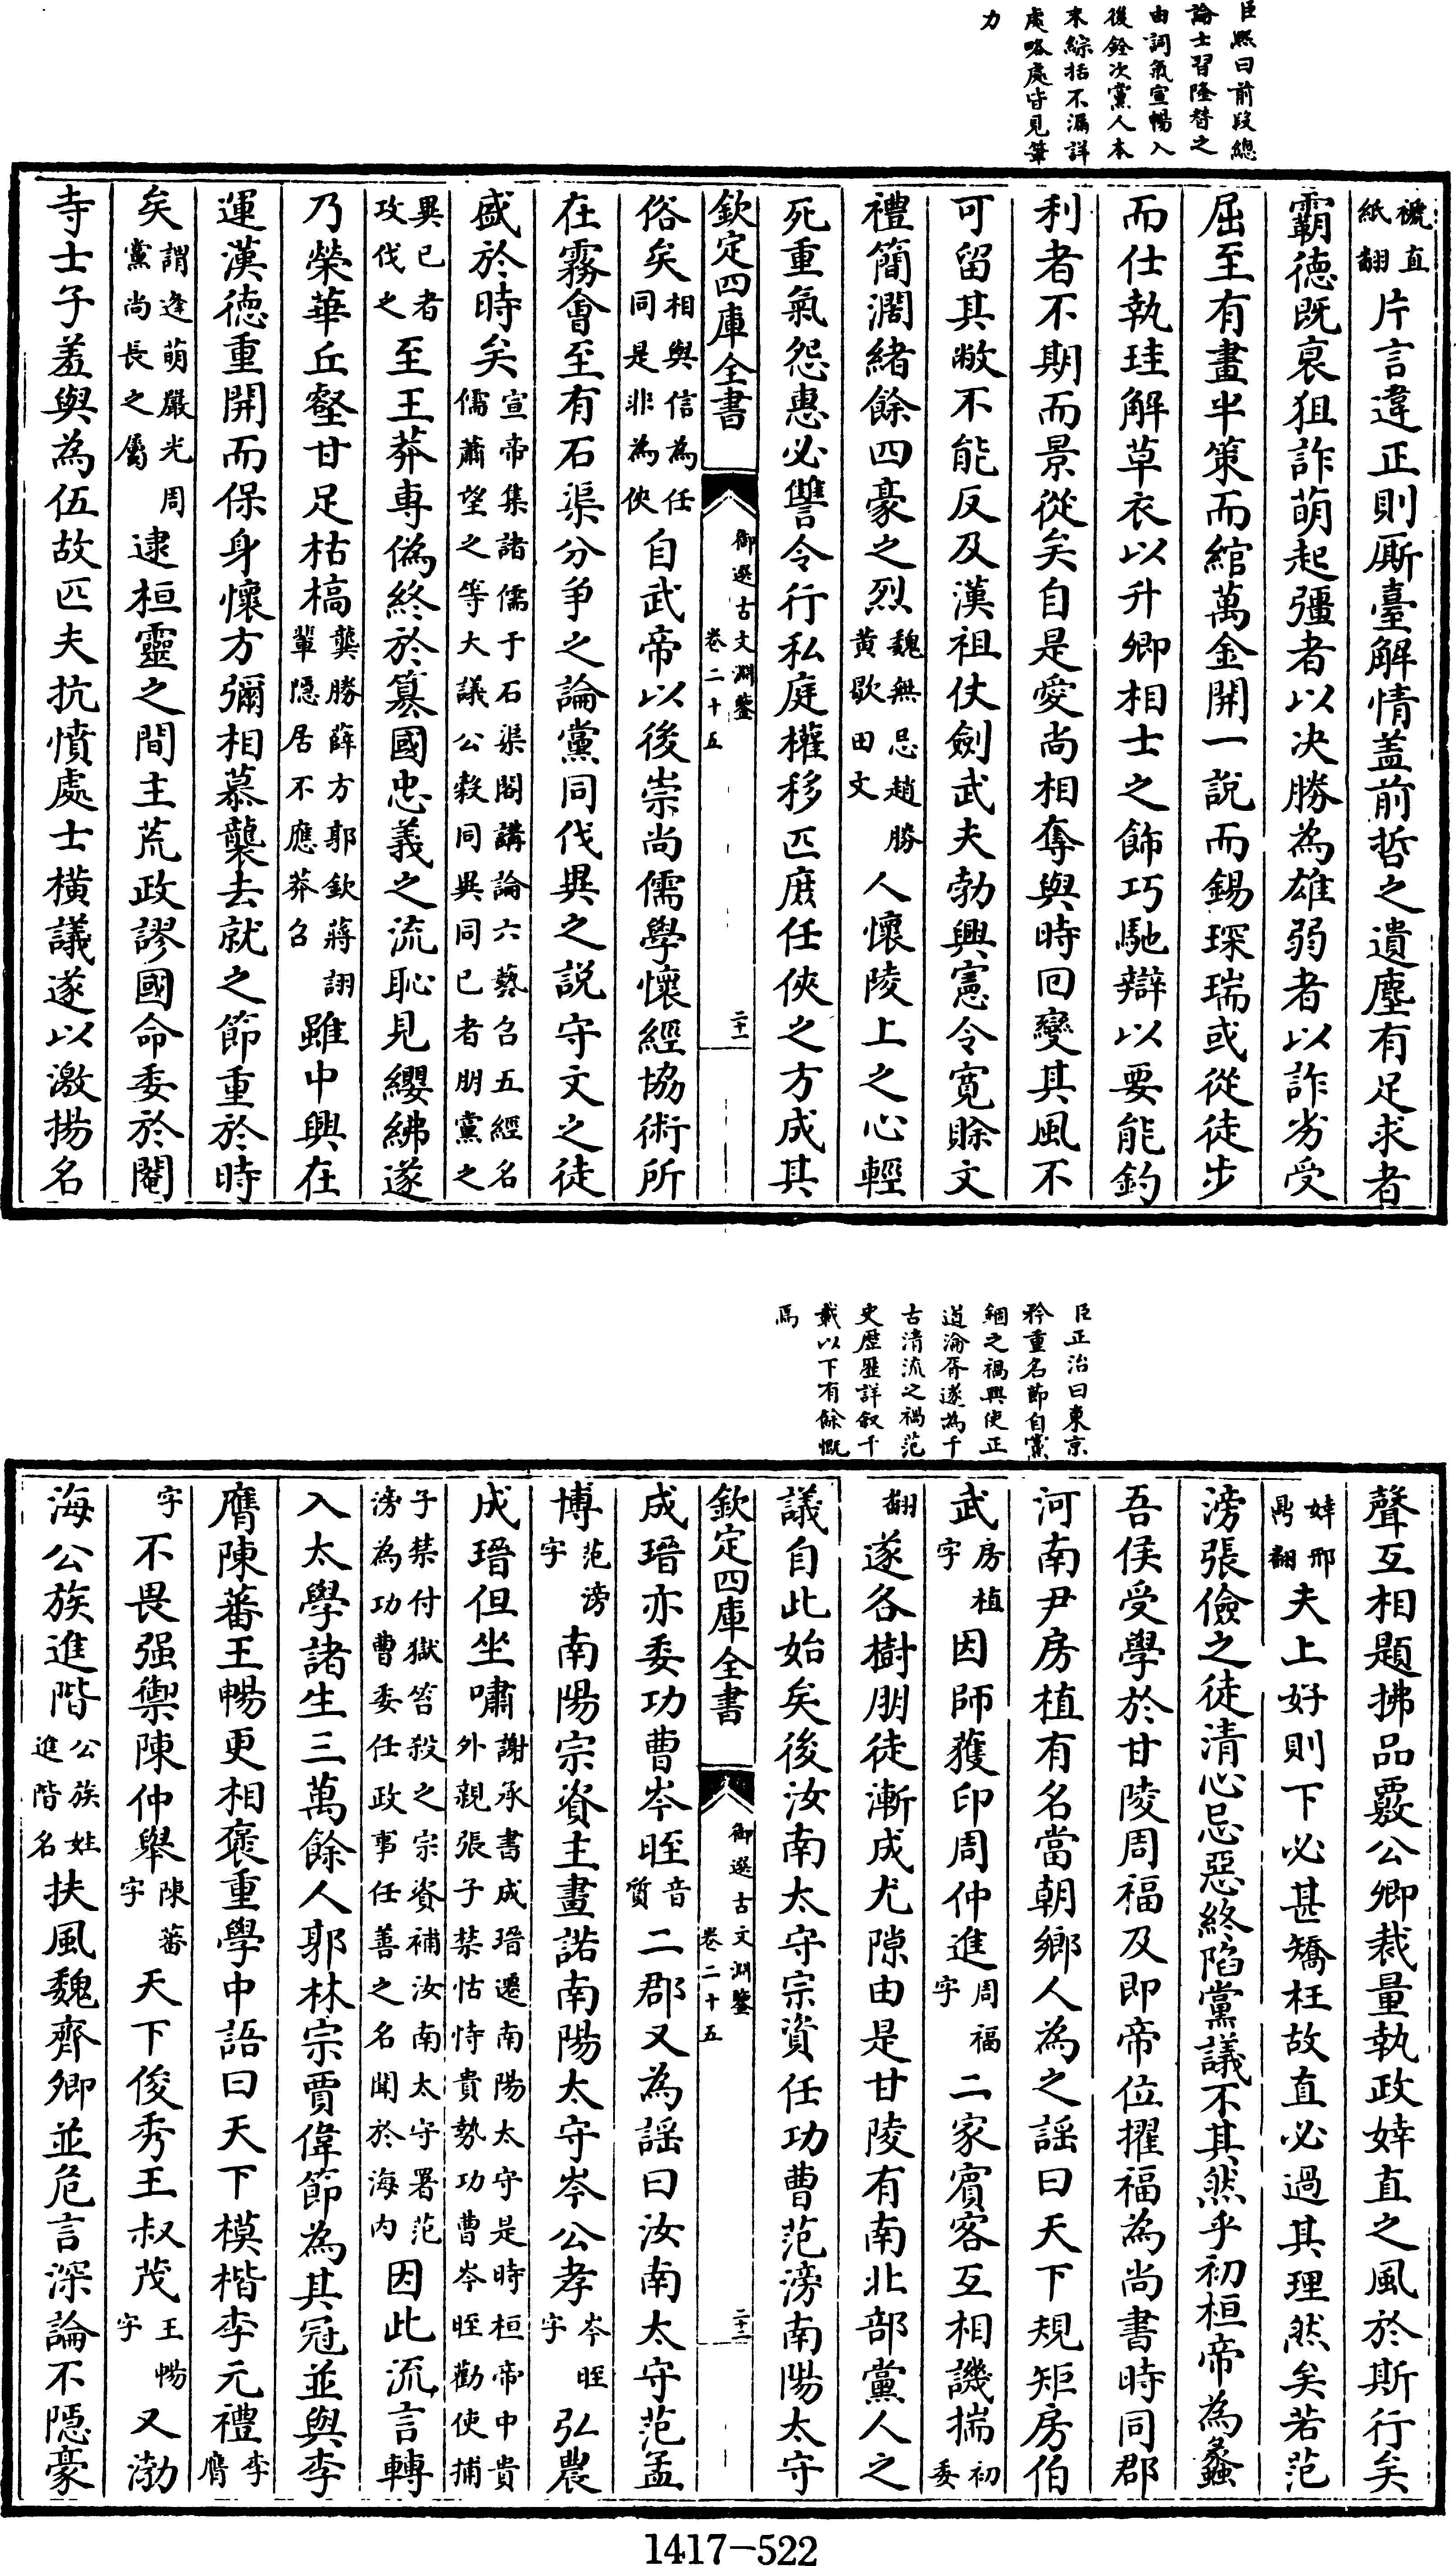 臣熙曰前段總
論士習隆替之
由詞氣宣暢入
後銓次黨人本
末綜括不漏詳
處略處皆見筆
力
褫直紙翻片言違正則厮臺解情盖前哲之遺塵有足求者
霸徳既衰狙詐萌起彊者以决勝為雄弱者以詐劣受
屈至有畫半策而綰萬金開一說而錫琛瑞或從徒步
而仕執珪解草衣以升卿相士之飾巧馳辯以要能釣
利者不期而景從矣自是愛尚相奪與時回變其風不
可留其敝不能反及漢祖仗劍武夫勃興憲令寛賖文
禮簡濶緒餘四豪之烈魏無忌趙勝黄歇田文人懷陵上之心輕
死重氣怨惠必讐令行私庭權移匹庶任俠之方成其
欽定四庫全書 御選古文淵鑒 卷二十五 二十一
俗矣相與信為任同是非為俠自武帝以後崇尚儒學懷經協術所
在霧會至有石渠分爭之論黨同伐異之説守文之徒
盛於時矣宣帝集諸儒于石渠閣講論六藝召五經名儒蕭望之等大議公穀同異同已者朋黨之
異已者攻伐之至王莽専偽終於簒國忠義之流恥見纓紼遂
乃榮華丘壑甘足枯槁龔勝薛方郭欽蔣詡輩隠居不應莽召雖中興在
運漢徳重開而保身懷方彌相慕襲去就之節重於時
矣謂逢萌嚴光周黨尚長之屬逮桓靈之間主荒政謬國命委於閹
寺士子羞與為伍故匹夫抗憤處士橫議遂以激揚名
臣正治曰東京
矜重名節自黨
錮之禍興使正
道淪胥遂為千
古清流之禍范
史歴歴詳叙千
載以下有餘慨
焉
聲互相題拂品覈公卿裁量執政婞直之風於斯行矣
婞邢鼎翻夫上好則下必甚矯枉故直必過其理然矣若范
滂張儉之徒清心忌惡終陷黨議不其然乎初桓帝為蠡
吾侯受學於甘陵周福及即帝位擢福為尚書時同郡
河南尹房植有名當朝鄉人為之謡曰天下規矩房伯
武房植字因師獲印周仲進周福字二家賓客互相譏揣初委
翻遂各樹朋徒漸成尤隙由是甘陵有南北部黨人之
議自此始矣後汝南太守宗資任功曹范滂南陽太守
欽定四庫全書 御選古文淵鑒 卷二十五 二十二
成瑨亦委功曹岑晊音質二郡又為謡曰汝南太守范孟
博范滂字南陽宗資主畫諾南陽太守岑公孝岑晊字弘農
成瑨但坐嘯謝承書成瑨遷南陽太守是時桓帝中貴外親張子禁怙恃貴勢功曹岑晊勸使捕
子禁付獄笞殺之宗資補汝南太守署范滂為功曹委任政事任善之名聞於海内因此流言轉
入太學諸生三萬餘人郭林宗賈偉節為其冠並與李
膺陳蕃王暢更相褒重學中語曰天下模楷李元禮李膺
字不畏强禦陳仲舉陳蕃字天下俊秀王叔茂王暢字又渤
海公族進階公族姓進階名扶風魏齊卿並危言深論不隱豪
1417-522